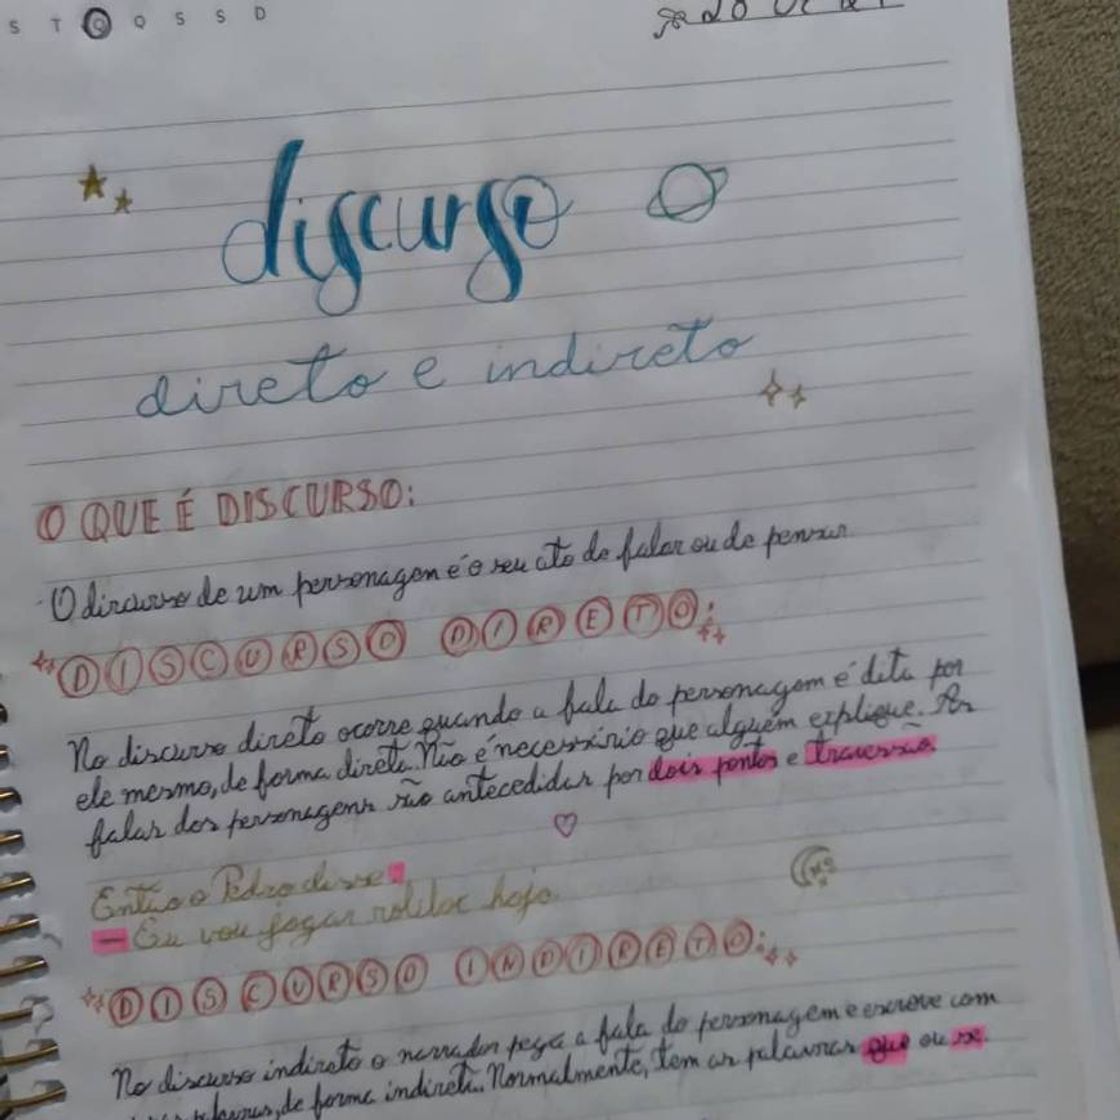 S T Q Q S S D
discurso
direto e indireto
O QUE É DISCURSO:
O discurso de um personagem é o seu ato de falar ou de pensar
DISCURSO DIRETO:
No discurso direto ocorre quando a fala do personagem é dita por
ele mesmo, de forma direta. Não é necessário que alguém explique. As
falas dos personagens são antecedidas por dois pontos e travessão.
Então o Pedro disse:
— Eu vou jogar roblox hoje.
DISCURSO INDIRETO:
No discurso indireto o narrador pega a fala do personagem e escreve com
palavras, de forma indireta. Normalmente, tem as palavras que ou se.